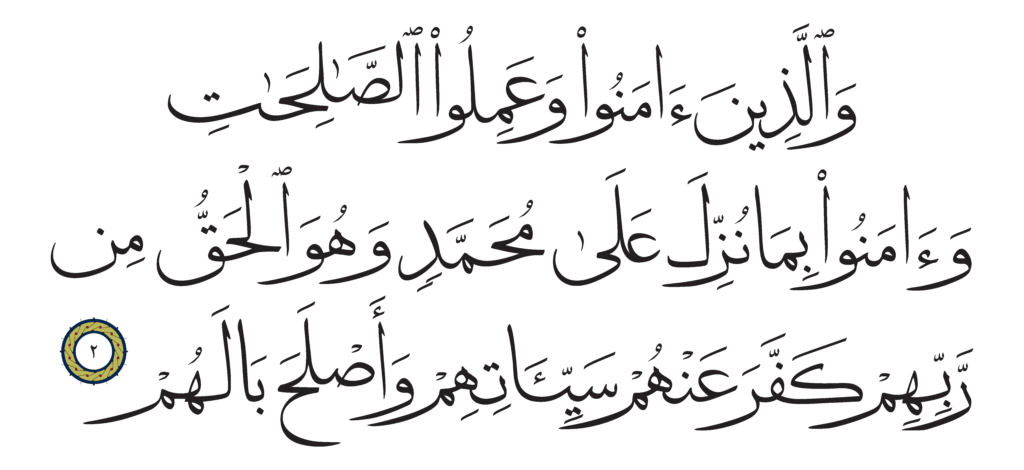 وَٱلَّذِينَ ءَامَنُوا۟ وَعَمِلُوا۟ ٱلصَّـٰلِحَـٰتِ
وَءَامَنُوا۟ بِمَا نُزِّلَ عَلَىٰ مُحَمَّدٍ وَهُوَ ٱلْحَقُّ مِن
رَّبِّهِمْ كَفَّرَ عَنْهُمْ سَيِّـَٔاتِهِمْ وَأَصْلَحَ بَالَهُمْ ٢